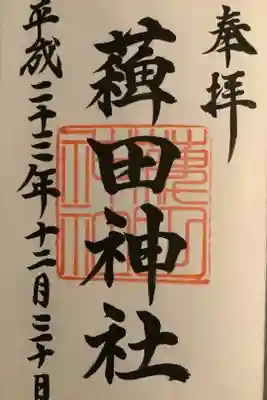 奉拝
薭田神社
平成二十三年十二月三十日